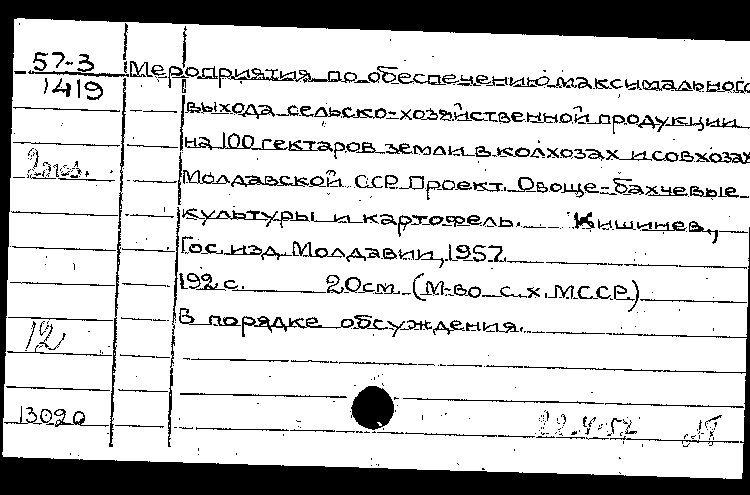 57-3
1419
Мероприятия по обеспечению максимального
выхода сельско-хозяйственной продукции
на 100 гектаров земли в колхозах и совхозах
2 экз.
Молдавской ССР. Проект. Овоще-бахчевые
культуры и картофель. Кишинев.,
Гос. изд. Молдавии, 1957.
192 с. 20см. (М-во с. х. МССР.)
В порядке обсуждения.
12
13020
22-4-57